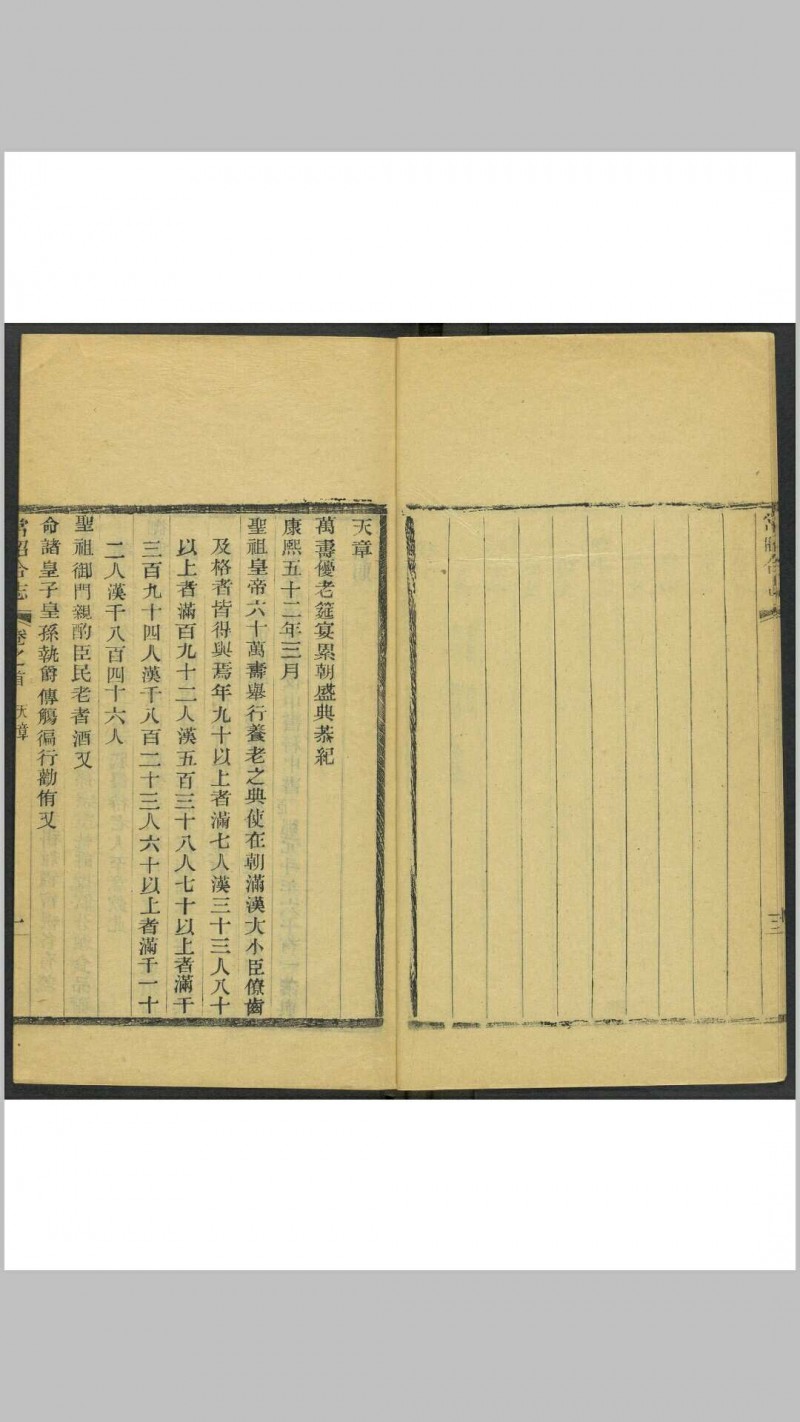 天章
萬壽優老筵宴累朝盛典恭紀
康熙五十二年三月
聖祖皇帝六十萬壽舉行養老之典使在朝滿漢大小臣僚齒
及格者皆得與焉年九十以上者滿七人漢三十三人八十
以上者滿百九十二人漢五百三十八人七十以上者滿千
三百九十四人漢千八百二十三人六十以上者滿千一十
二人漢千八百四十六人
聖祖御門親酌臣民老者酒又
命諸皇子皇孫執爵傳觴徧行勸侑又
常昭合志 卷之首 天章 一